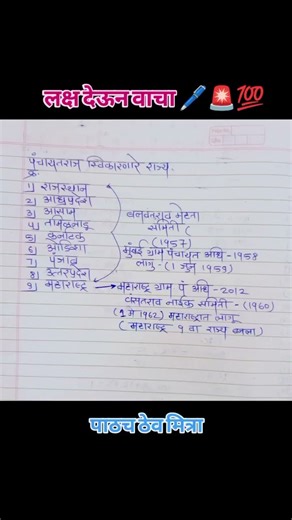 लक्ष देऊन वाचा 🖊️🚨💯
पंचायतराज स्विकारनारे राज्य.
क्र
1) राजस्थान
2) आंध्रप्रदेश
3) आसाम
4) तामिळनाडू
5) कर्नाटक
6) ओडिशा
7) पंजाब
8) उत्तरप्रदेश
9) महाराष्ट्र
बलवंतराव मेहता
समिती (
(1957)
मुंबई ग्राम पंचायत अधि - 1958
लागु - (1 जुन 1959)
महाराष्ट्र ग्राम पं अधि - 2012
वसंतराव नाईक समिती - (1960)
(1 मे 1962) महाराष्ट्रात लागू
(महाराष्ट्र ९ वा राज्य बनला)
पाठच ठेव मित्रा